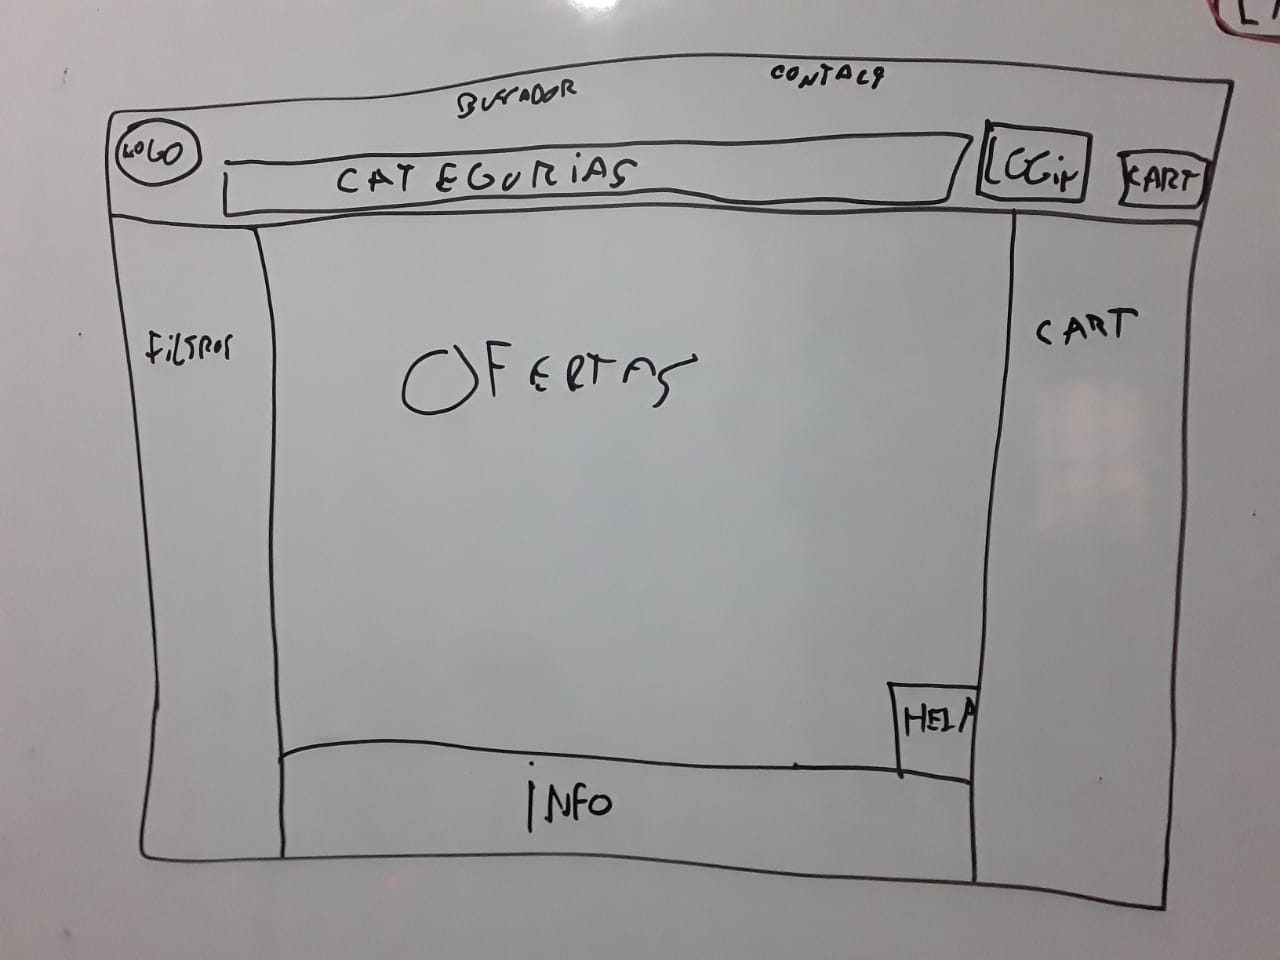 BUSCADOR
CONTACT
LOGO
CATEGORIAS
LOGiN
CART
FiLTROS
OFERTAS
CART
HELP
iNFO